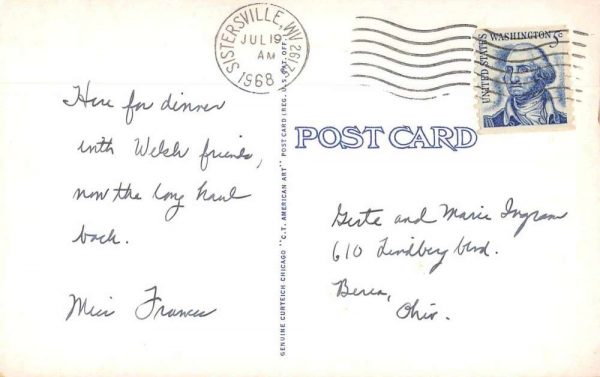 SISTERSVILLE, WV 261
JUL 19
AM
1968
UNITED STATES
WASHINGTON 5c
Here for dinner
with Welsh friends,
now the long haul
back.
Miss Frances
GENUINE CURTEICH-CHICAGO "C.T. AMERICAN ART" POST CARD (REG. U.S. PAT. OFF.)
POST CARD
and Marie Ingram
610 Lindberg blvd.
Berea,
Ohio.